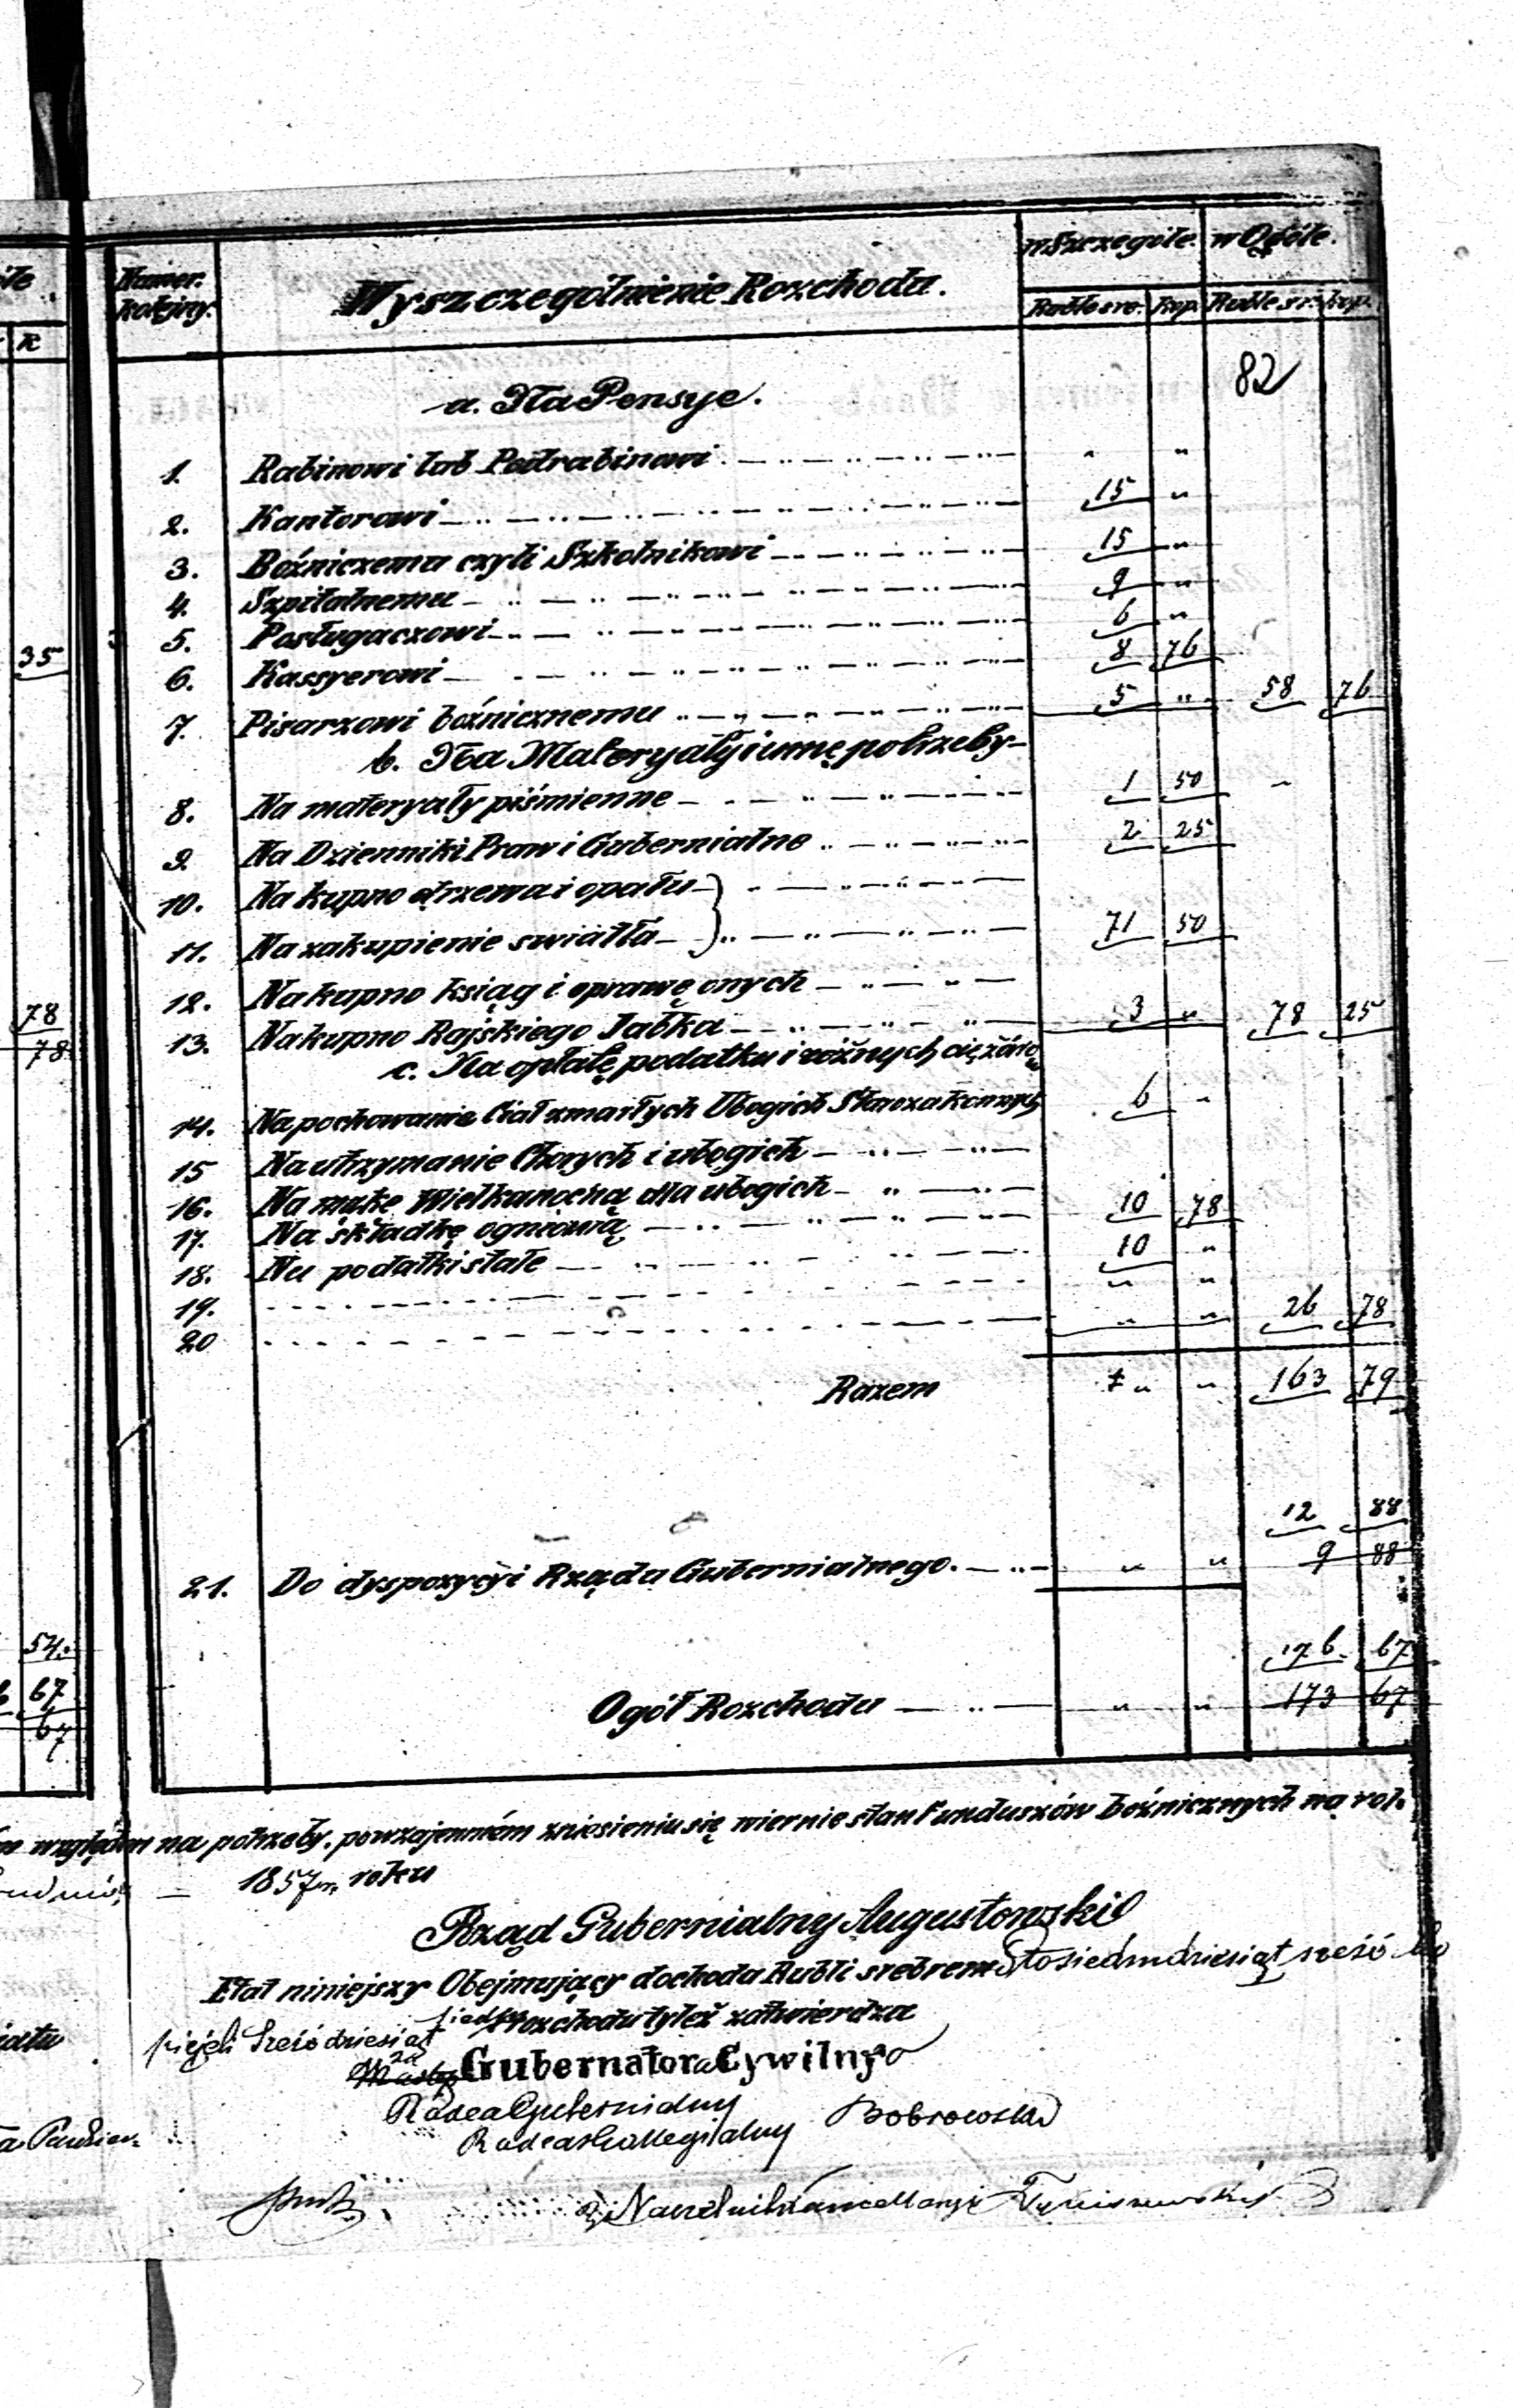 Numer kolejny. Wyszczególnienie Rozchodu. w Szczególe. w Ogóle.
Ruble sre. Kop. Ruble sr. kop.
82
a. Na Pensye.
1. Rabinowi lub Podrabinowi " "
2. Kantorowi 15 "
3. Bożniczemu czyli Szkolnikowi 15 "
4. Szpitalnemu 9 "
5. Posługaczowi 6 "
6. Kassyerowi 8 76
7. Pisarzowi bożnicznemu 5 " 58 76
b. Na Materyały i inne potrzeby
8. Na materyały piśmienne 1 50 "
9. Na Dzienniki Praw i Gubernialne 2 25
10. Na kupno drzewa i opału
11. Na zakupienie swiatła 71 50
12. Na kupno ksiąg i oprawę onych
13. Na kupno Rajskiego Jabłka 3 " 78 25
c. Na opłatę podatku i różnych ciężarów
14. Na pochowanie Ciał zmarłych Ubogich Starozakonnych 6 "
15 Na utrzymanie Chorych i ubogich
16. Na mąkę Wielkanocną dla ubogich 10 78
17. Na składkę ogniową 10 "
18. Na podatki stałe " "
19.
20 " " 26 78
Razem " " 163 79
12 88
21. Do dyspozycyi Rządu Gubernialnego. " " 9 88
176 67
Ogół Rozchodu " " 173 67
względem na potrzeby. po wzajemném zniesieniu się wiernie stan Funduszów bożnicznych na rok
1857 roku
Rząd Gubernialny Augustowski
Etat niniejszy Obejmujący dochodu Rubli srebrem Sto siedmdziesiąt sześć
kopiejek sześćdziesiąt siedm Rozchodu tyleż zatwierdza
za Gubernatora Cywilnego
Radca Gubernialny
Radca Kollegialny Bobrowski
Naczelnik Kancellaryi
35
78
78
54
67
67